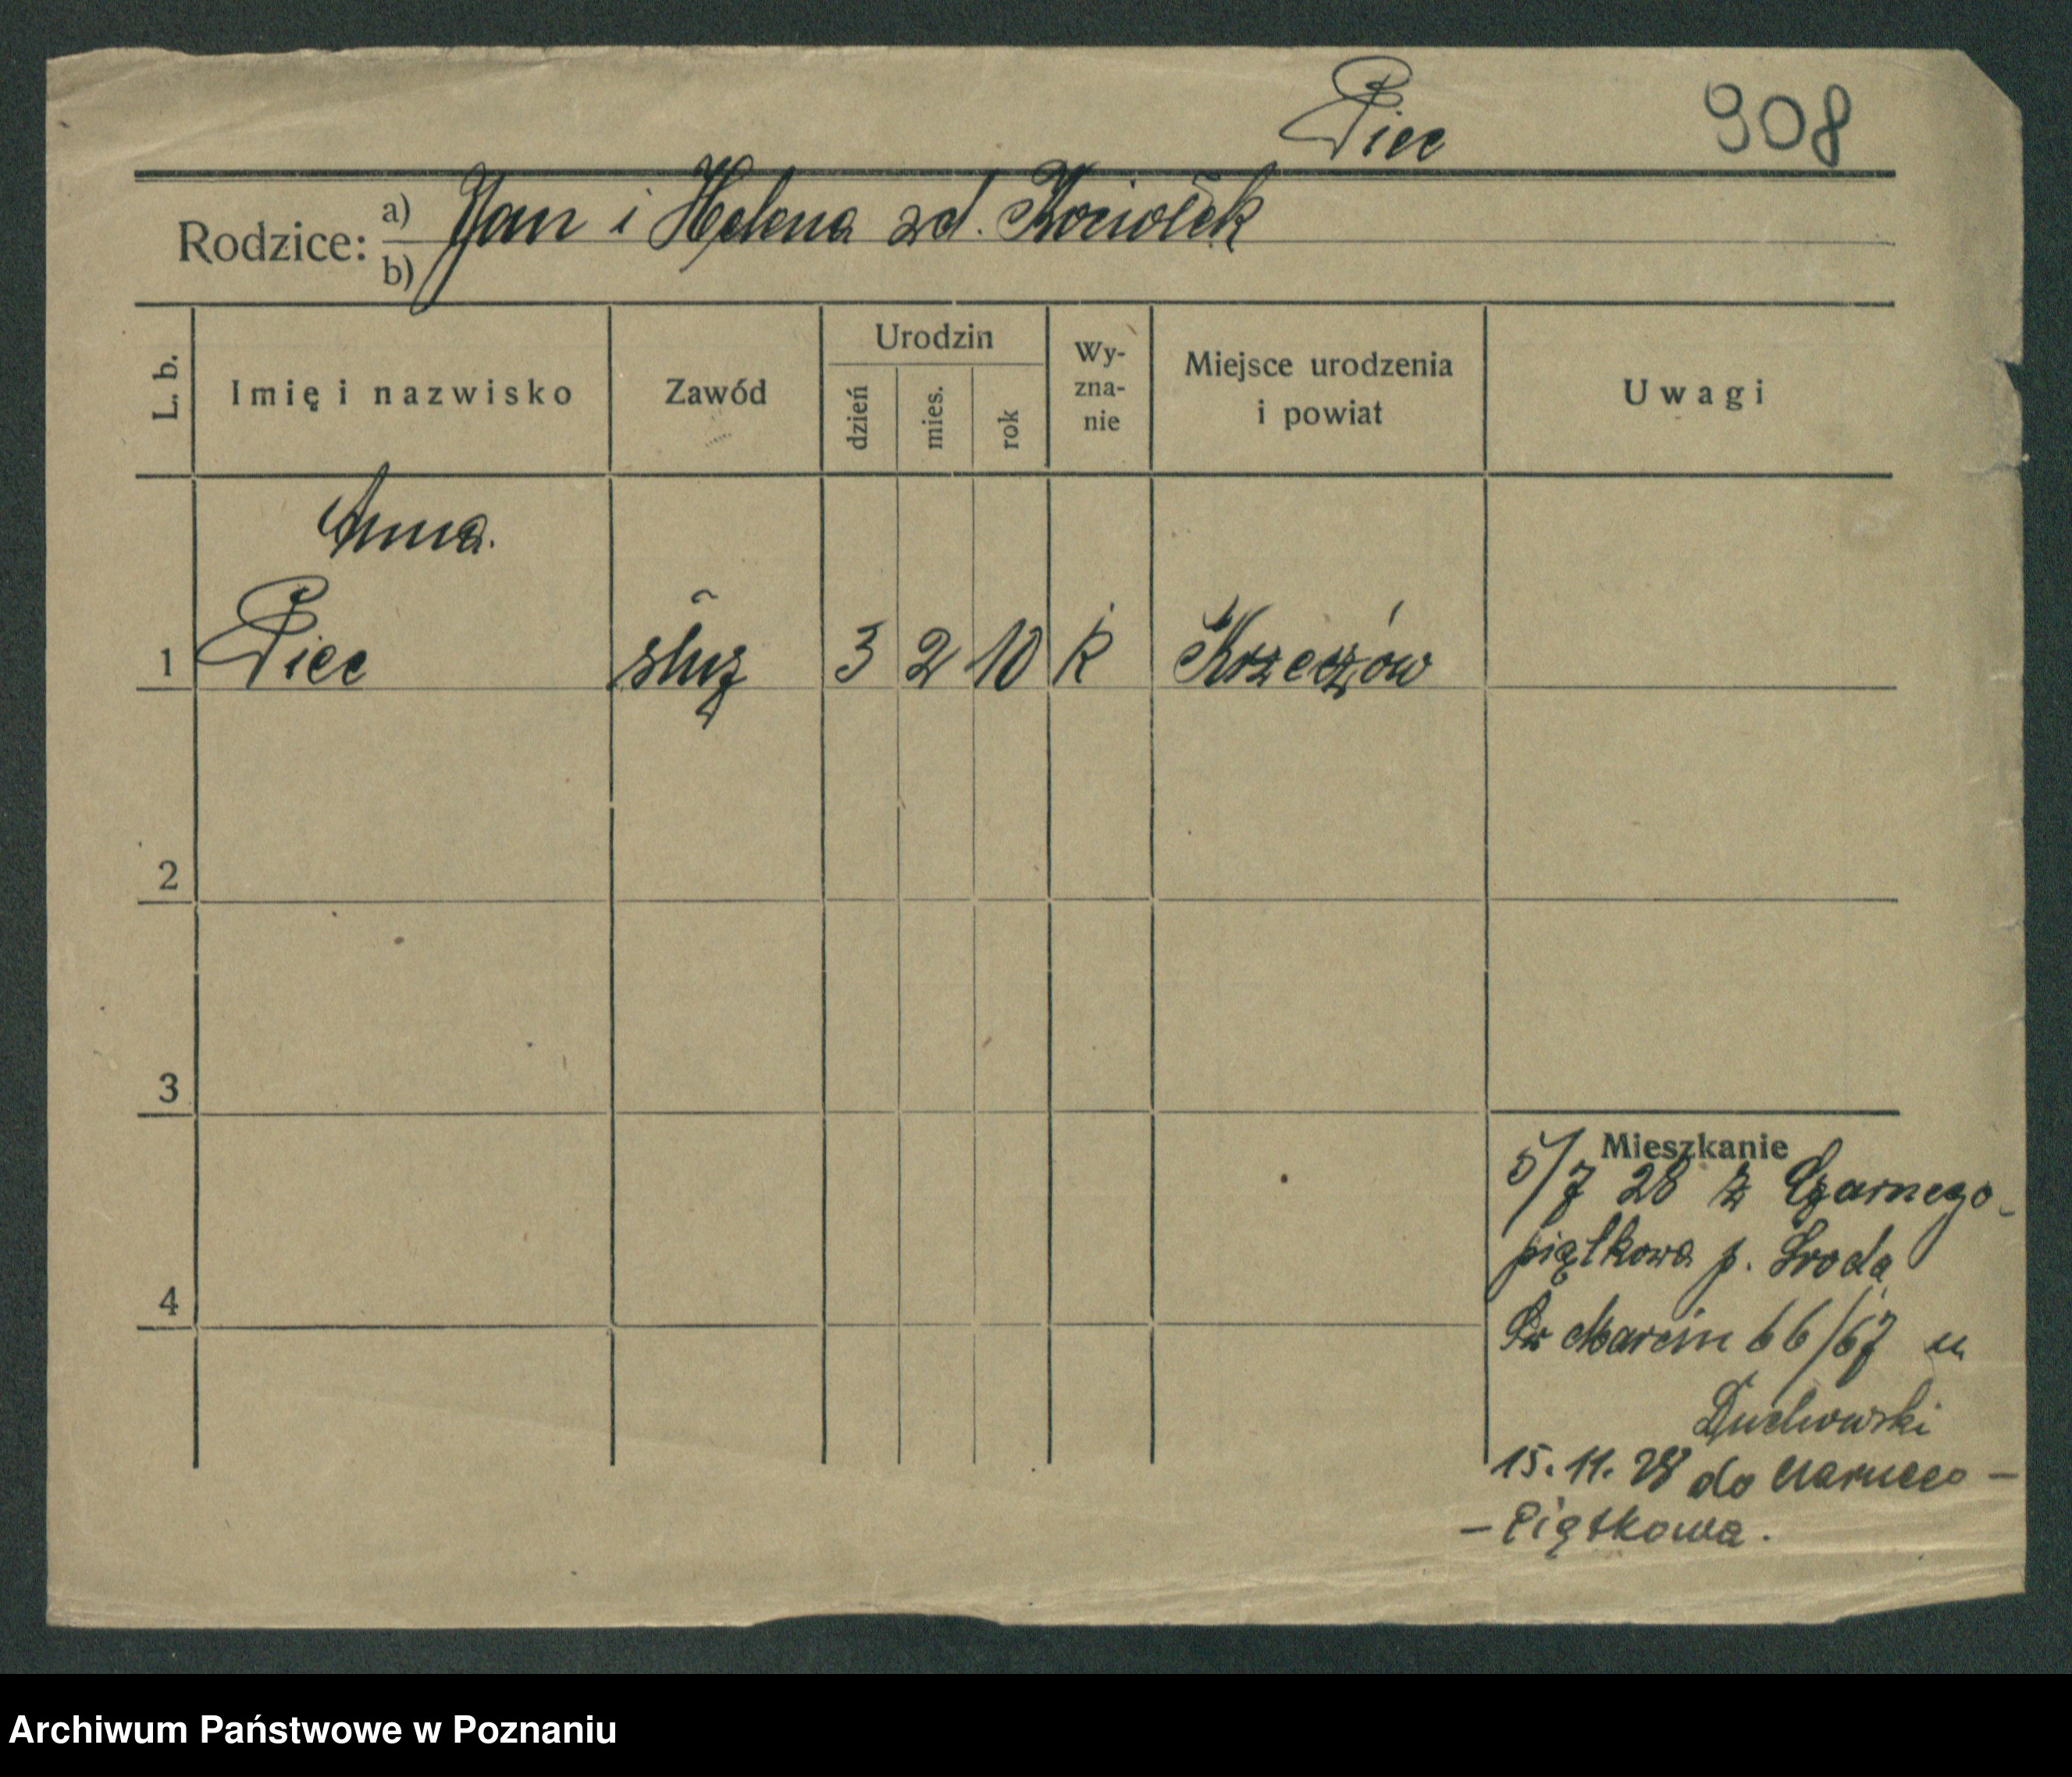 Piec 908
Rodzice: a) Jan i Helena zd. Kociołek
b)
L. b. Imię i nazwisko Zawód Urodzin dzień mies. rok Wy-zna-nie Miejsce urodzenia i powiat Uwagi
Anna.
1 Piec służ 3 2 10 k Krzeczów
2
3
Mieszkanie
5/7 28 z Czarnego-
piątkowa p. Środa
4
Św Marcin 66/67 u
15.11.28 do Czarnego -
- Piątkowa.
Archiwum Państwowe w Poznaniu